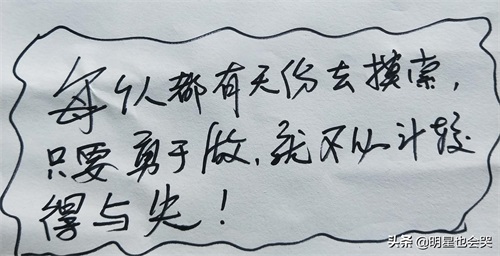 每个人都有天份去摸索，
只要勇于做，就不必计较
得与失！
头条 @明星也会哭